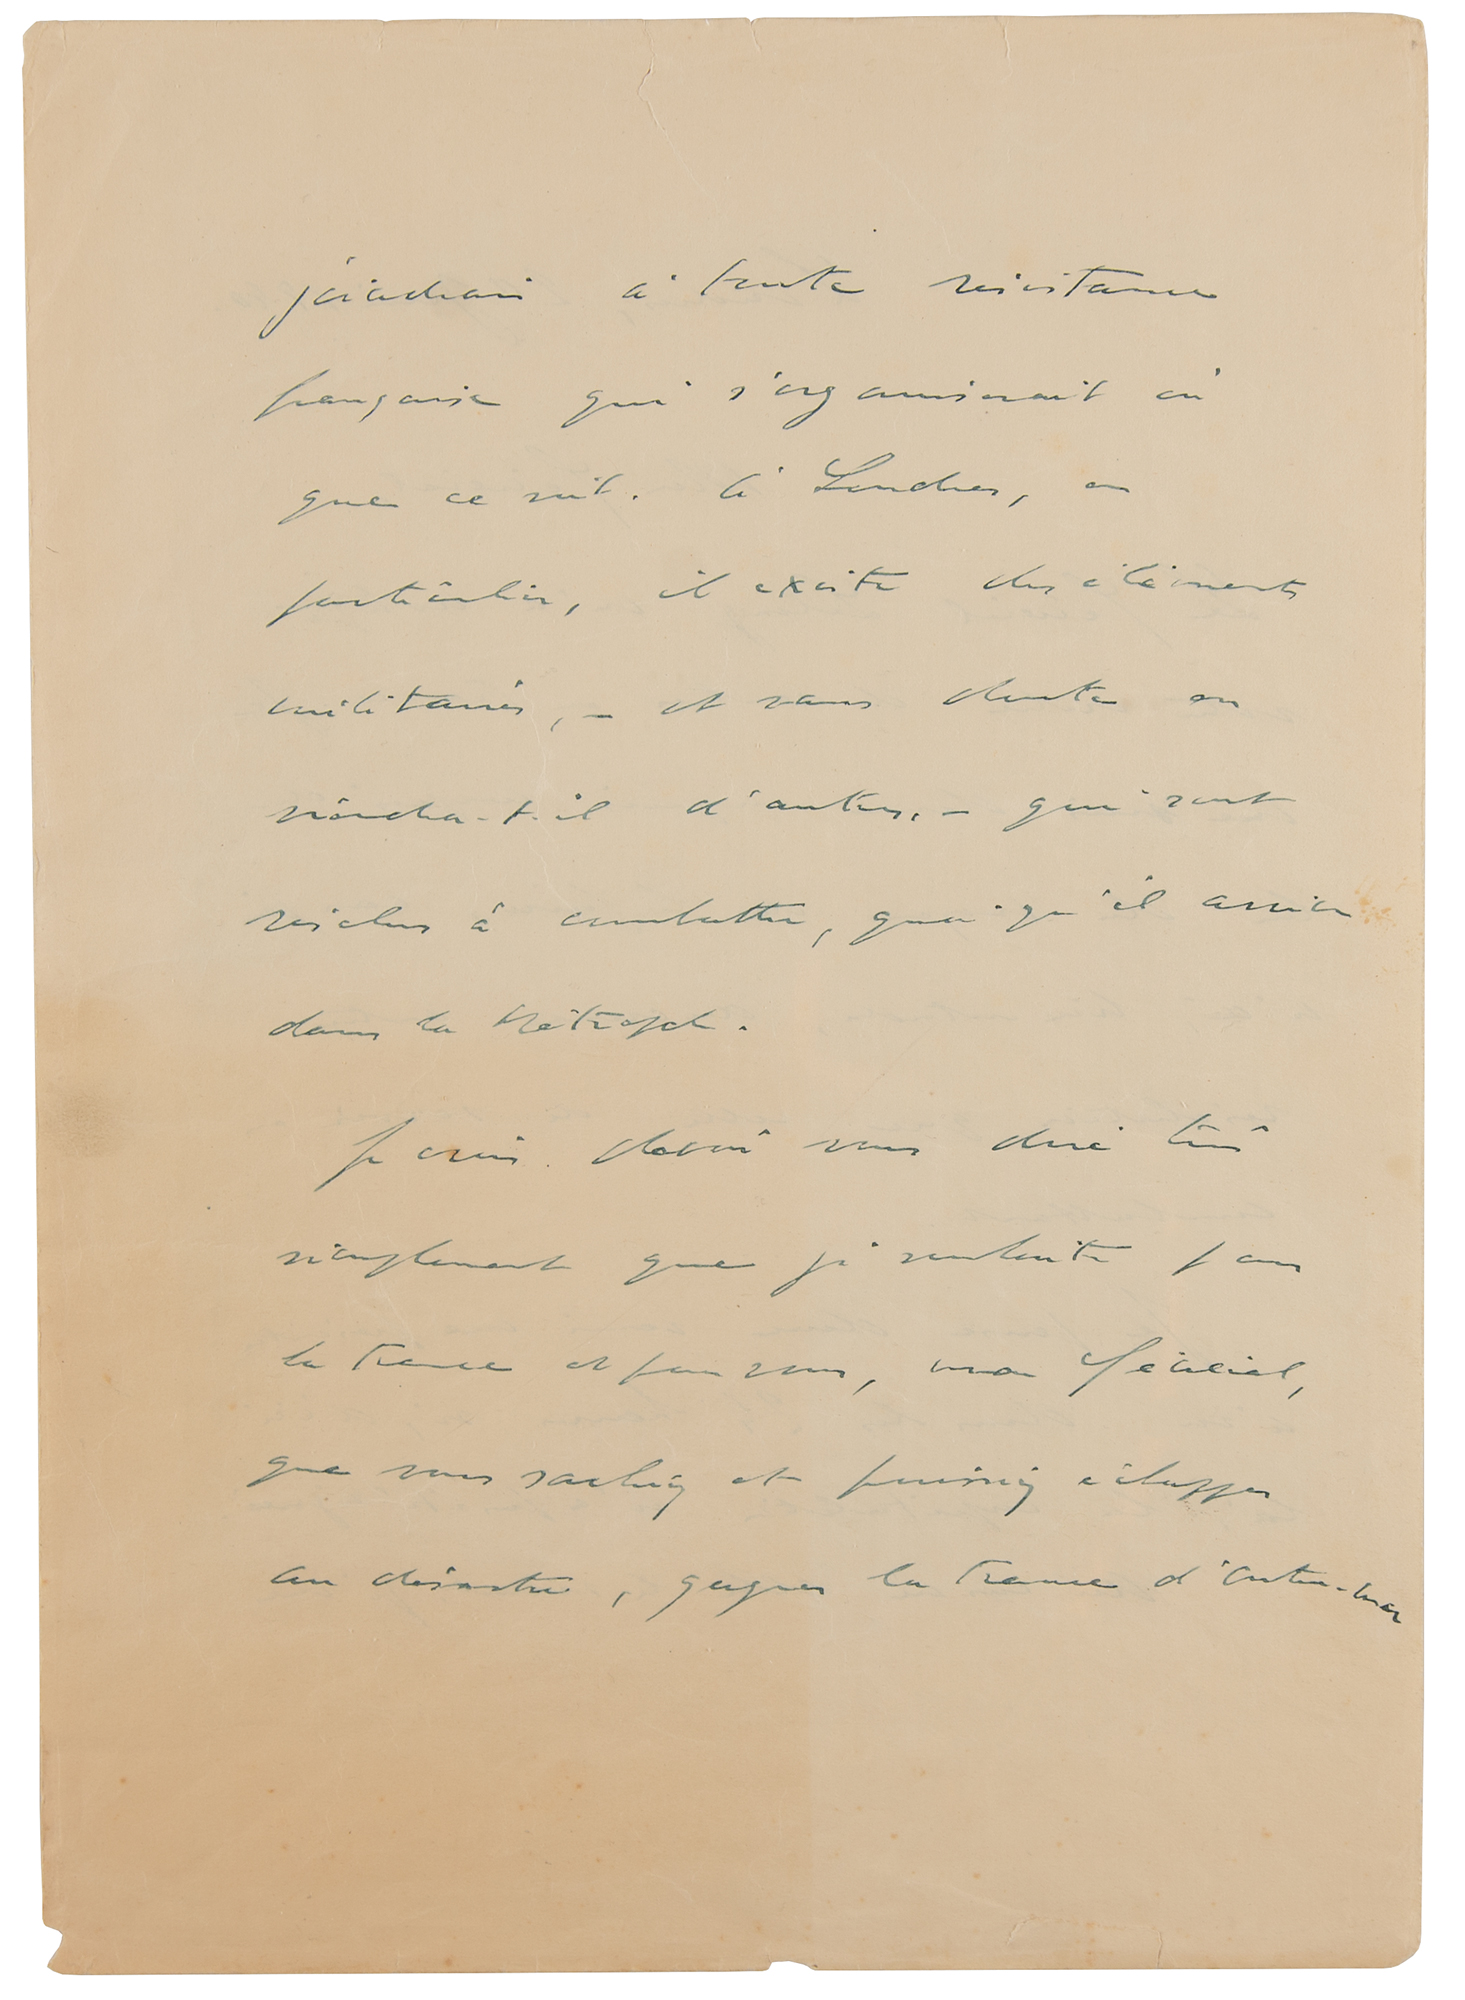 j'adhérerais à toute résistance
française qui s'organiserait où
que ce soit. à Londres, en
particulier, il existe des éléments
militaires, - et sans doute en
viendra-t-il d'autres, - qui sont
résolus à combattre, quoi qu'il arrive
dans la Métropole.
Je crois devoir vous dire très
simplement que je souhaite pour
la France et pour vous, mon Général,
que vous sachiez et puissiez échapper
au désastre, gagner la France d'Outre-mer